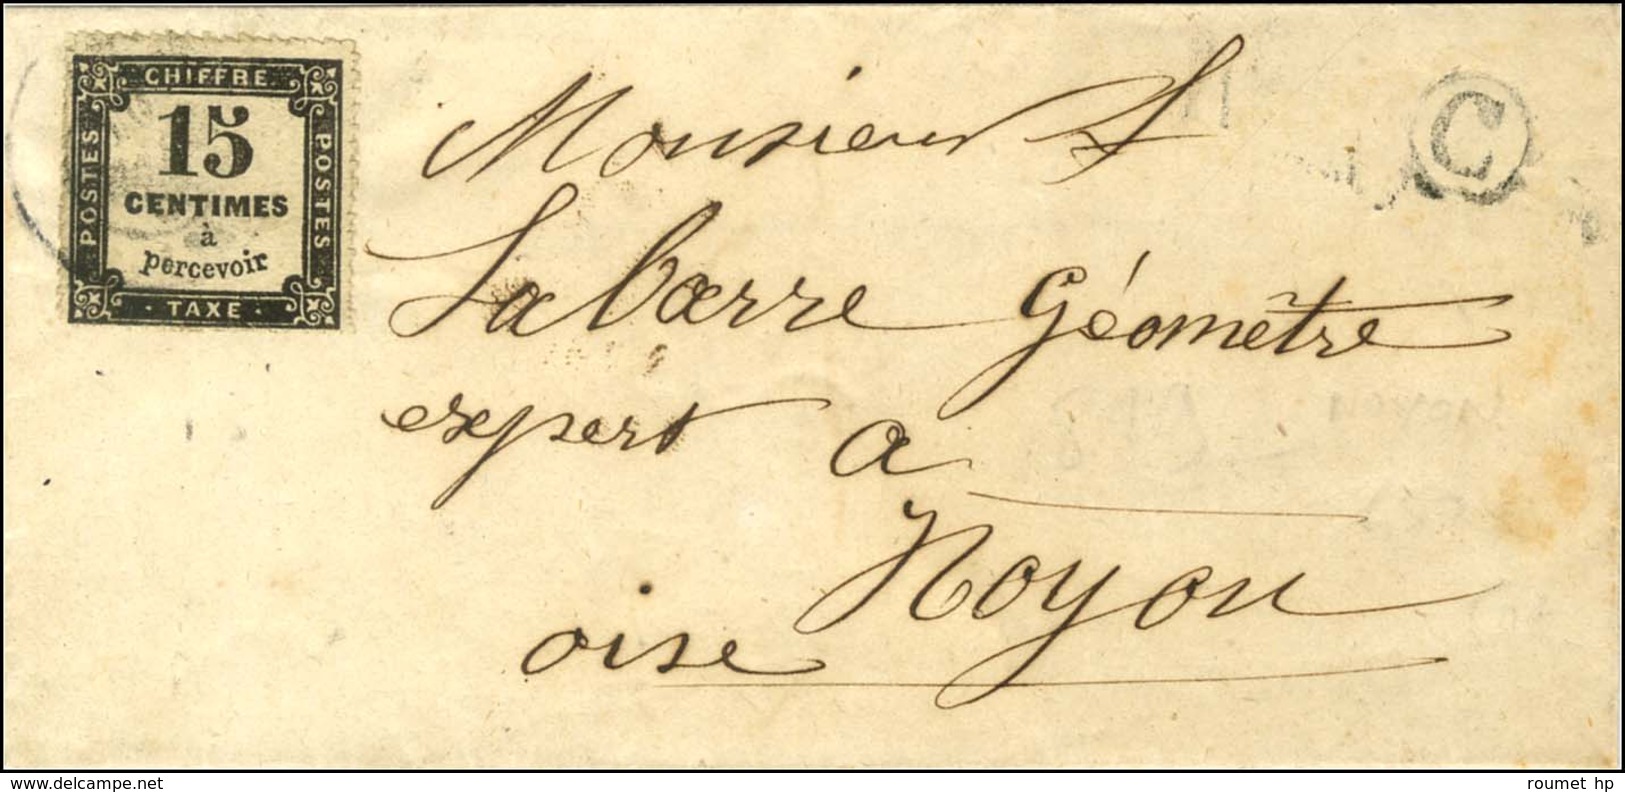 CHIFFRE
POSTES
15
CENTIMES
à
percevoir
POSTES
TAXE
C
Monsieur
Labarre Géomètre
expert a
Noyon
oise
www.delcampe.net
roumet hp